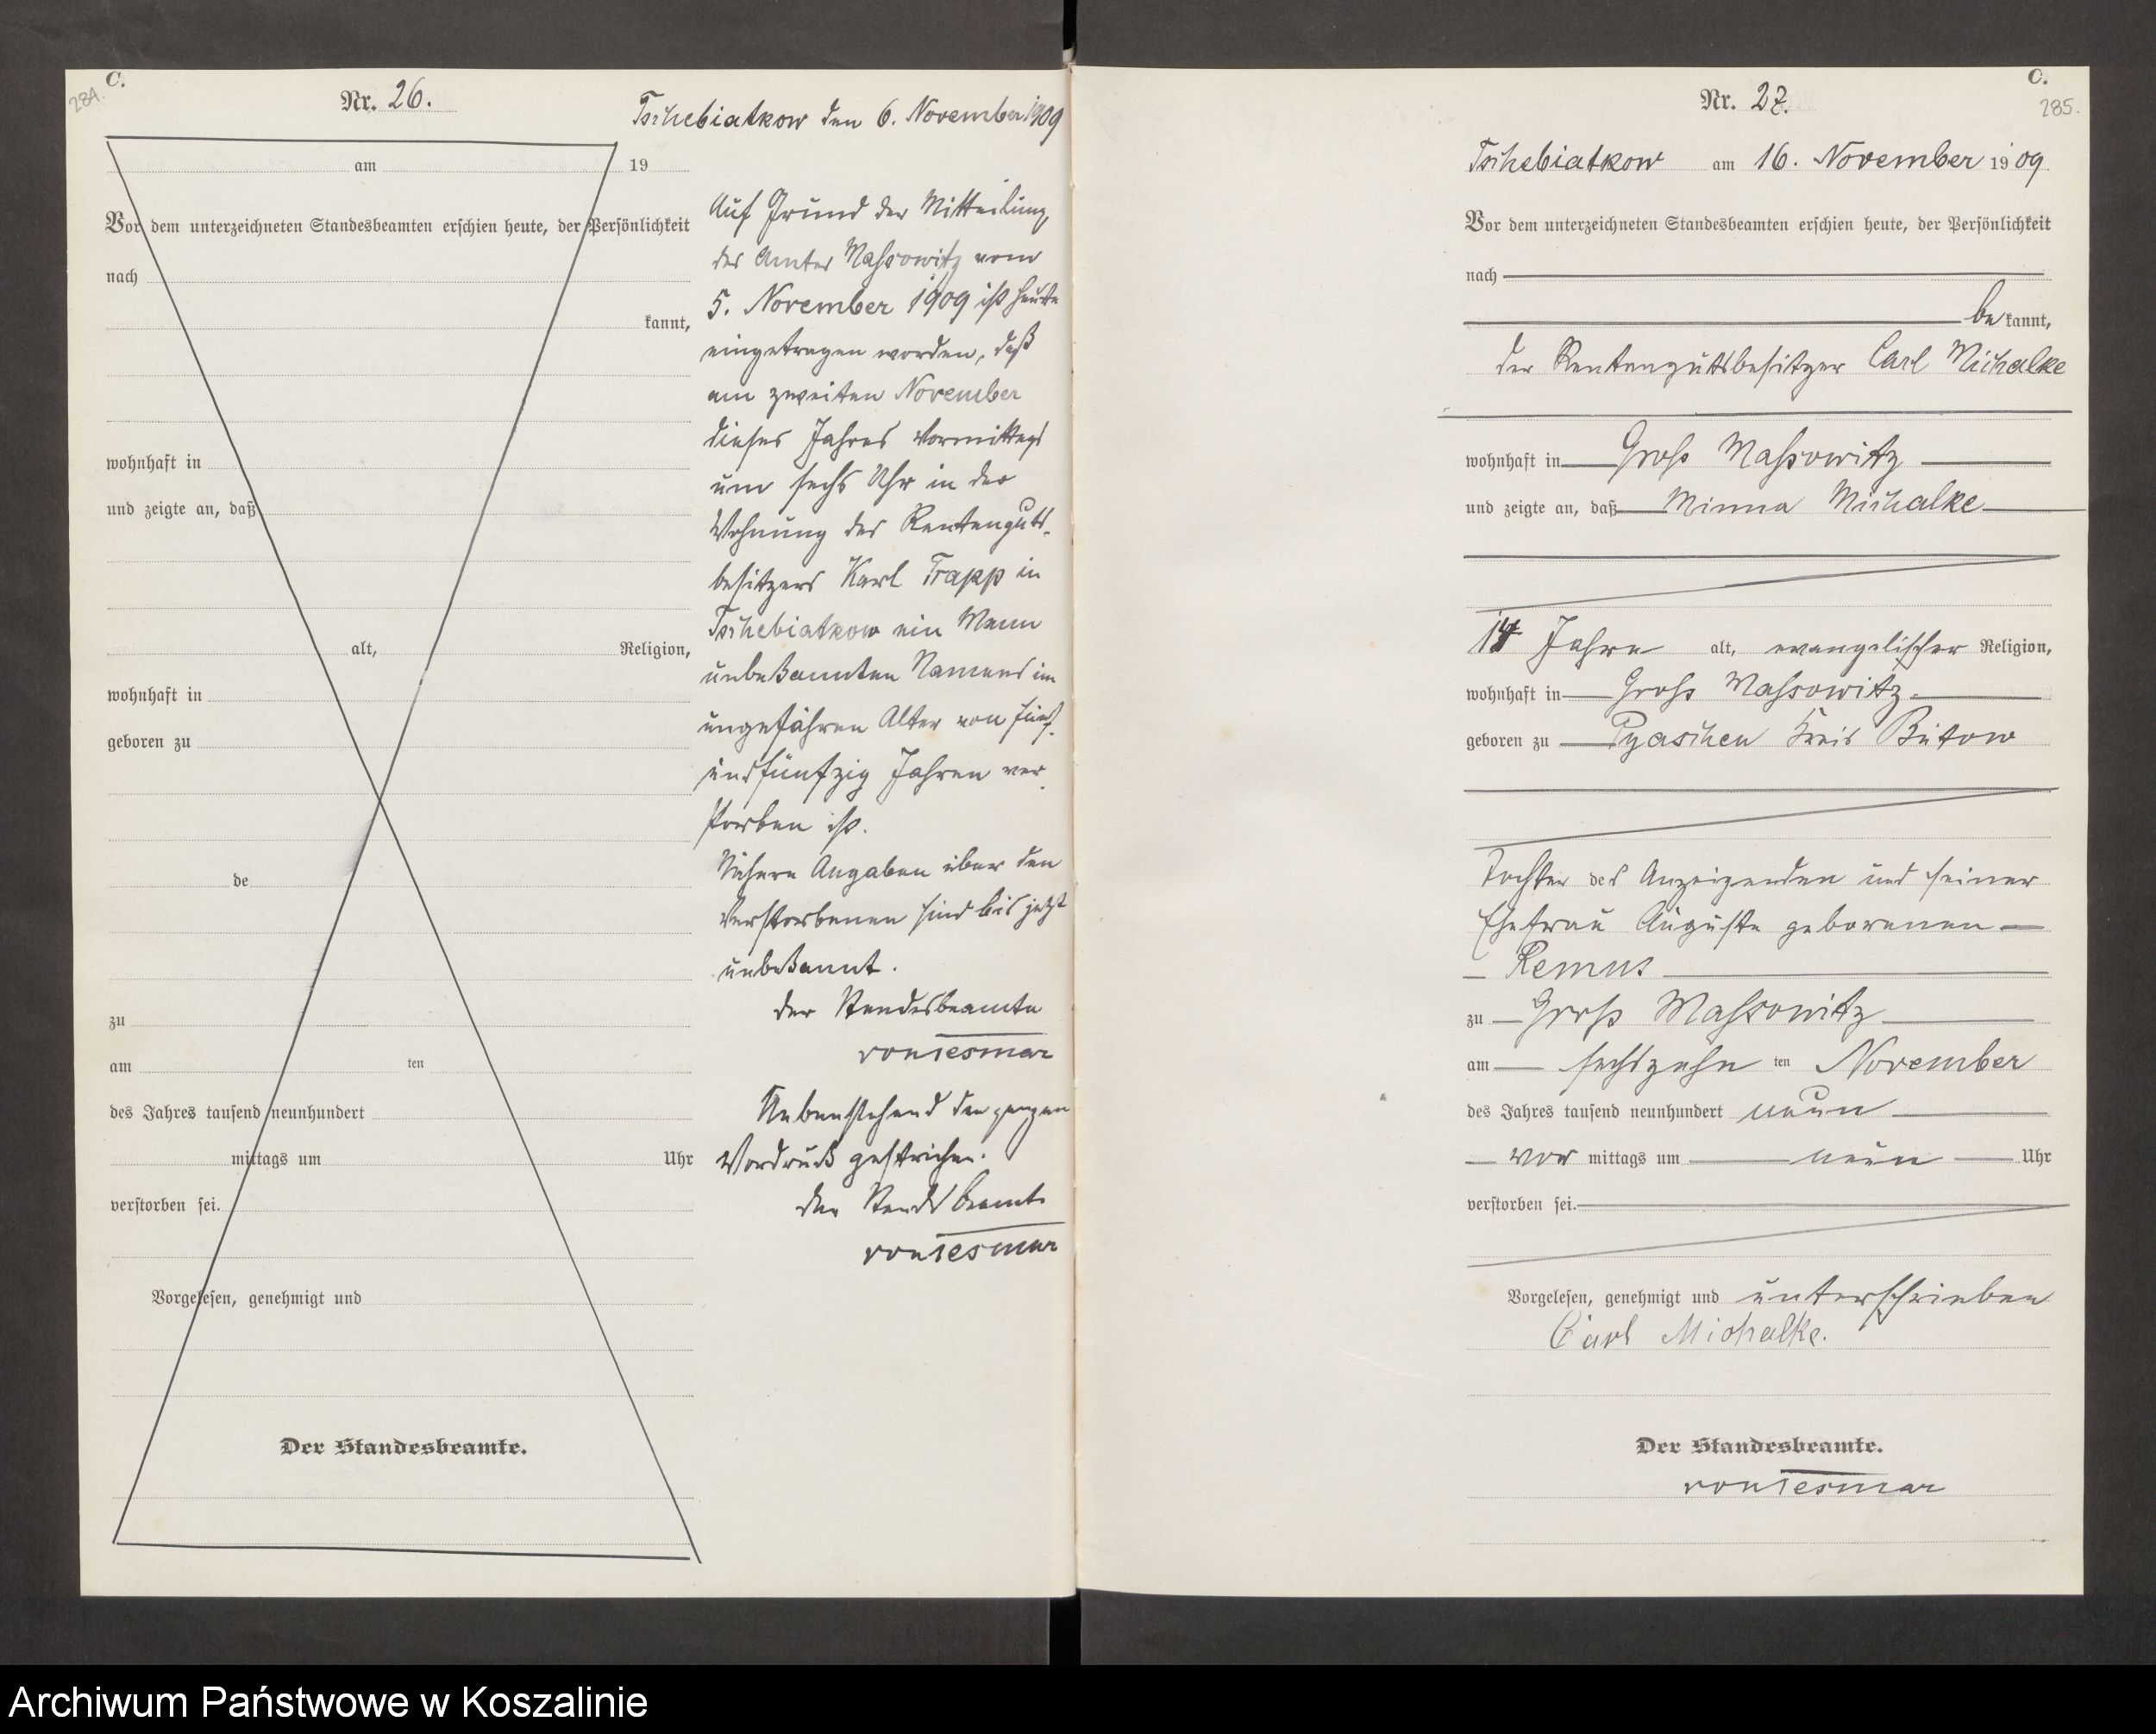 C.
284.
Nr. 26.
Tschebiatkow den 6. November 1909
am 19
Vor dem unterzeichneten Standesbeamten erschien heute, der Persönlichkeit
nach
kannt,
wohnhaft in
und zeigte an, daß
alt, Religion,
wohnhaft in
geboren zu
de
zu
am ten
des Jahres tausend neunhundert
mittags um Uhr
verstorben sei.
Vorgelesen, genehmigt und
Der Standesbeamte.
Auf Grund der Mitteilung
des Amtes Massowitz vom
5. November 1909 ist heute
eingetragen worden, daß
am zweiten November
dieses Jahres Vormittags
um sechs Uhr in der
Wohnung des Rentenguts-
besitzers Karl Trapp in
Tschebiatkow ein Mann
unbekannten Namens im
ungefähren Alter von fünf-
undfünfzig Jahren ver-
storben ist.
Nähere Angaben über den
Verstorbenen sind bis jetzt
unbekannt.
Der Standesbeamte
von Tesmar
Nebenstehend den ganzen
Vordruck gestrichen.
Der Standesbeamte
von Tesmar
C.
285.
Nr. 27.
Tschebiatkow am 16. November 1909
Vor dem unterzeichneten Standesbeamten erschien heute, der Persönlichkeit
nach
be kannt,
der Rentengutsbesitzer Carl Michalke
wohnhaft in Gross Massowitz
und zeigte an, daß Minna Michalke
Jahre alt, evangelischer Religion,
wohnhaft in Gross Massowitz
geboren zu Pyaschen Kreis Bütow
Tochter des Anzeigenden und seiner
Ehefrau Auguste geborenen
Remus
zu Gross Massowitz
am sechszehn ten November
des Jahres tausend neunhundert neun
vor mittags um neun Uhr
verstorben sei.
Vorgelesen, genehmigt und unterschrieben
Carl Michalke.
Der Standesbeamte.
von Tesmar
Archiwum Państwowe w Koszalinie